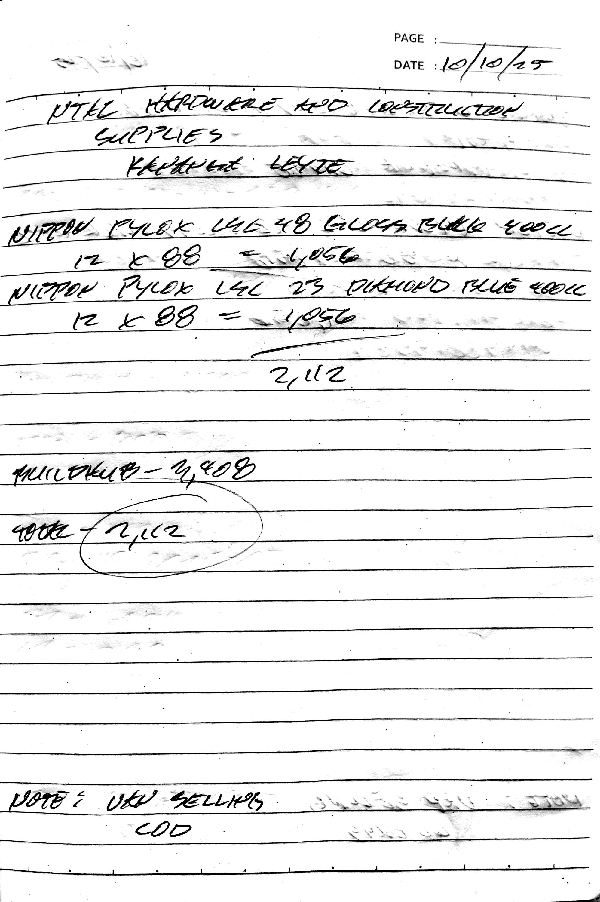 PAGE :
DATE : 10/10/25
NTAL HARDWARE AND CONSTRUCTION
SUPPLIES
KANANGA LEYTE
NIPPON PYLOX LAC 48 GLOSS BLACK 400CC
12 x 88 = 1,056
NIPPON PYLOX LAC 23 DIAMOND BLUE 400CC
12 x 88 = 1,056
2,112
BUILDHUB - 3,408
TOTAL - 2,112
NOTE : VAN SELLING
COD